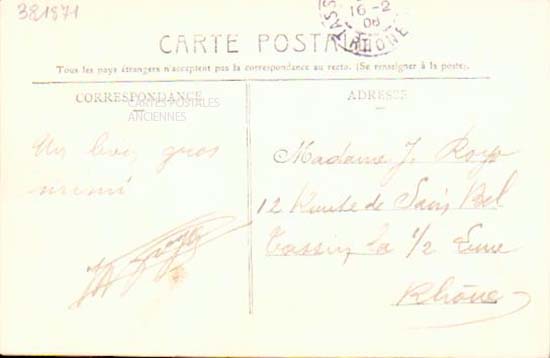 381971
TASS
16-2
08
RHONE
CARTE POSTALE
Tous les pays étrangers n'acceptent pas la correspondance au recto. (Se renseigner à la poste).
CORRESPONDANCE
ADRESSE
CARTES POSTALES
ANCIENNES
Un bon gros
Madame J. Royo
12 Route de Sain Bel
Tassin la 1/2 Lune
Rhône